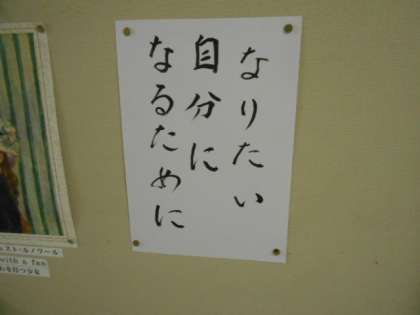 なりたい
自分に
なるために
スト・ルノワール
with a fan
を持つ少女